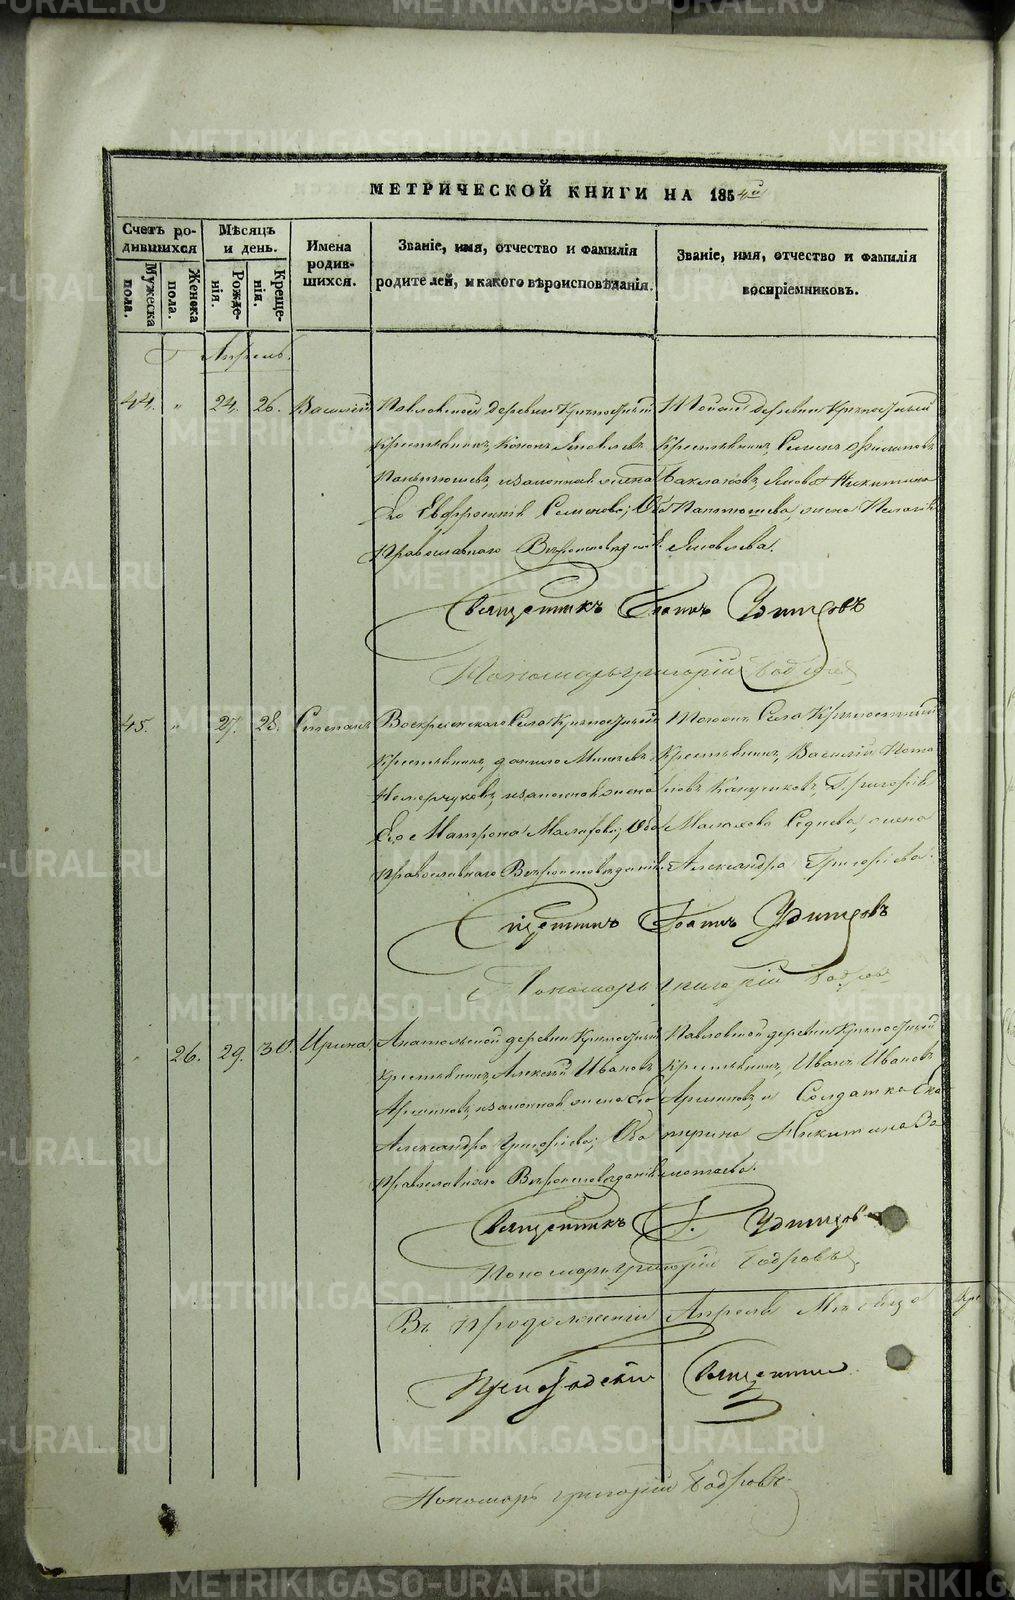 МЕТРИЧЕСКОЙ КНИГИ НА 1854й
Счетъ родившихся
Мѣсяцъ и день.
Имена родившихся.
Званіе, имя, отчество и фамилія родителей, и какого вѣроисповѣданія.
Званіе, имя, отчество и фамилія воспріемниковъ.
Мужеска пола.
Женска пола.
Рожденія.
Крещенія.
Апрель.
44. " 24. 26. Василій
Павловской деревни Крѣпостный
Крестьянинъ, Яковлевъ
Пантюшевъ, и законная жена
Его Евфросинія Семенова; Оба
Православнаго Вѣроисповѣданія.
Тойже деревни Крѣпостный
Крестьянинъ, Семенъ Филиповъ
Баклановъ, Никитина
Пантюшева, жена Пелагія
Яковлева.
Священникъ Іоаннъ Удинцовъ
Пономарь Григорій Бодровъ
45. " 27. 28. Степанъ
Воскресенскаго Села Крѣпостный
Крестьянинъ, Данило Минеевъ
и законная жена
Его Матрона Малафеева; Оба
Православнаго Вѣроисповѣданія.
Тогоже Села Крѣпостный
Крестьянинъ, Василій
Григорія
Малахова Седнева, жена
Александра Григорьева.
Священникъ Іоаннъ Удинцовъ
Пономарь Григорій Бодровъ
" 26. 29. 30. Ирина
Анатольской деревни Крѣпостный
Крестьянинъ, Алексѣй Ивановъ
и законная жена его
Александра Григорьева; Оба
Православнаго Вѣроисповѣданія
Павловской деревни Крѣпостный
Крестьянинъ, Иванъ Ивановъ
и Солдатка Ека-
терина Никитина
Священникъ І. Удинцовъ
Пономарь Григорій Бодровъ
Въ продолженіи Апреля Месяца
Приходскій Священникъ
Пономарь Григорій Бодровъ
METRIKI.GASO-URAL.RU